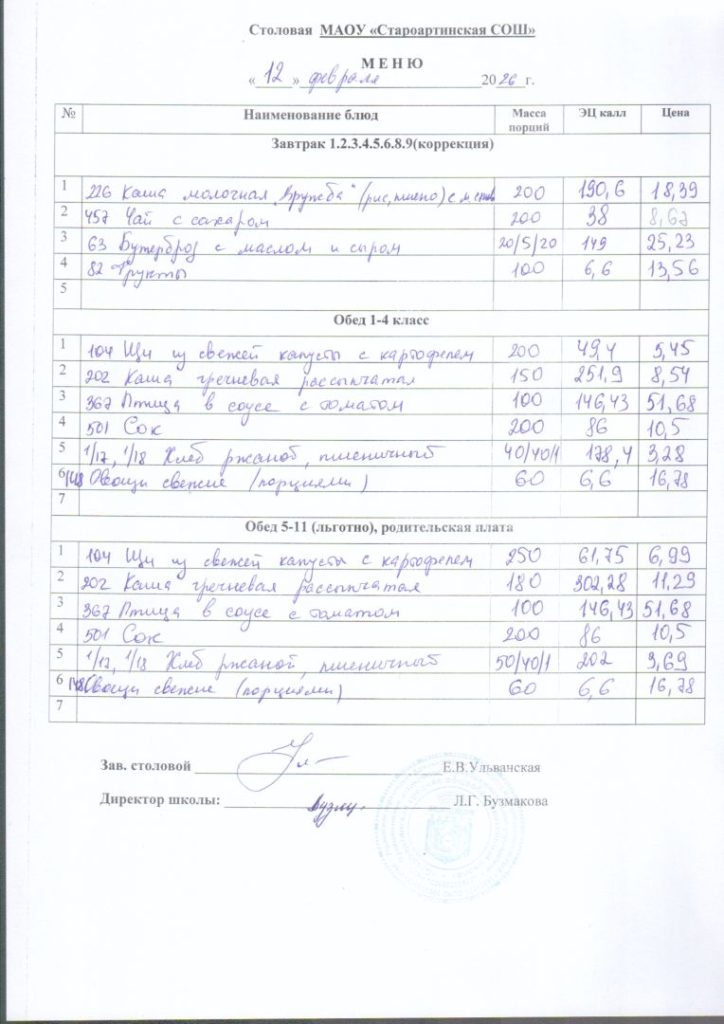 Столовая МАОУ «Староартинская СОШ»
М Е Н Ю
« 12 » февраля 2026 г.
№ Наименование блюд Масса порций ЭЦ калл Цена
Завтрак 1.2.3.4.5.6.8.9(коррекция)
1 226 Каша молочная „Дружба" (рис, пшено) с м. слив 200 190,6 18,39
2 457 Чай с сахаром 200 38 8,67
3 63 Бутерброд с маслом и сыром 20/5/20 149 25,23
4 82 Фрукты 100 6,6 13,56
5
Обед 1-4 класс
1 104 Щи из свежей капусты с картофелем 200 49,4 5,45
2 202 Каша гречневая рассыпчатая 150 251,9 8,54
3 367 Птица в соусе с томатом 100 146,43 51,68
4 501 Сок 200 86 10,5
5 1/17, 1/18 Хлеб ржаной, пшеничный 40/40/1 178,4 3,28
6 148 Овощи свежие (порциями) 60 6,6 16,78
7
Обед 5-11 (льготно), родительская плата
1 104 Щи из свежей капусты с картофелем 250 61,75 6,99
2 202 Каша гречневая рассыпчатая 180 302,28 11,29
3 367 Птица в соусе с томатом 100 146,43 51,68
4 501 Сок 200 86 10,5
5 1/17, 1/18 Хлеб ржаной, пшеничный 50/40/1 202 3,69
6 148 Овощи свежие (порциями) 60 6,6 16,78
7
Зав. столовой Е.В.Ульванская
Директор школы: Л.Г. Бузмакова